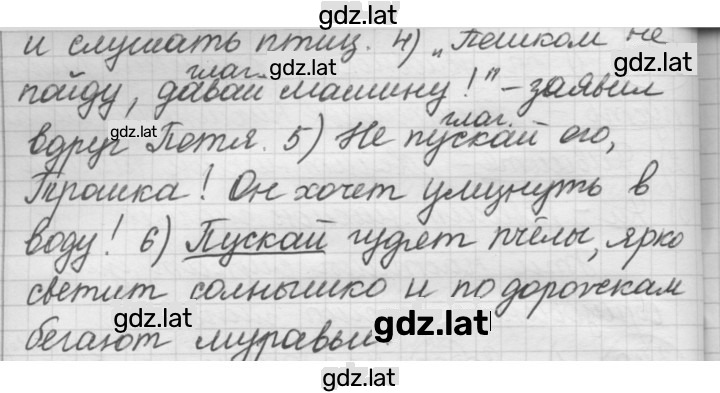 gdz.lat
и слушать птиц. 4) „Пешком не
глаг. gdz.lat gdz.lat
пойду, давай машину!" - заявил
gdz.lat глаг.
вдруг Петя. 5) Не пускай его,
Трошка! Он хочет улизнуть в
воду! 6) Пускай гудят пчёлы, ярко
светит солнышко и по дорожкам
gdz.lat gdz.lat
бегают муравьи
gdz.lat